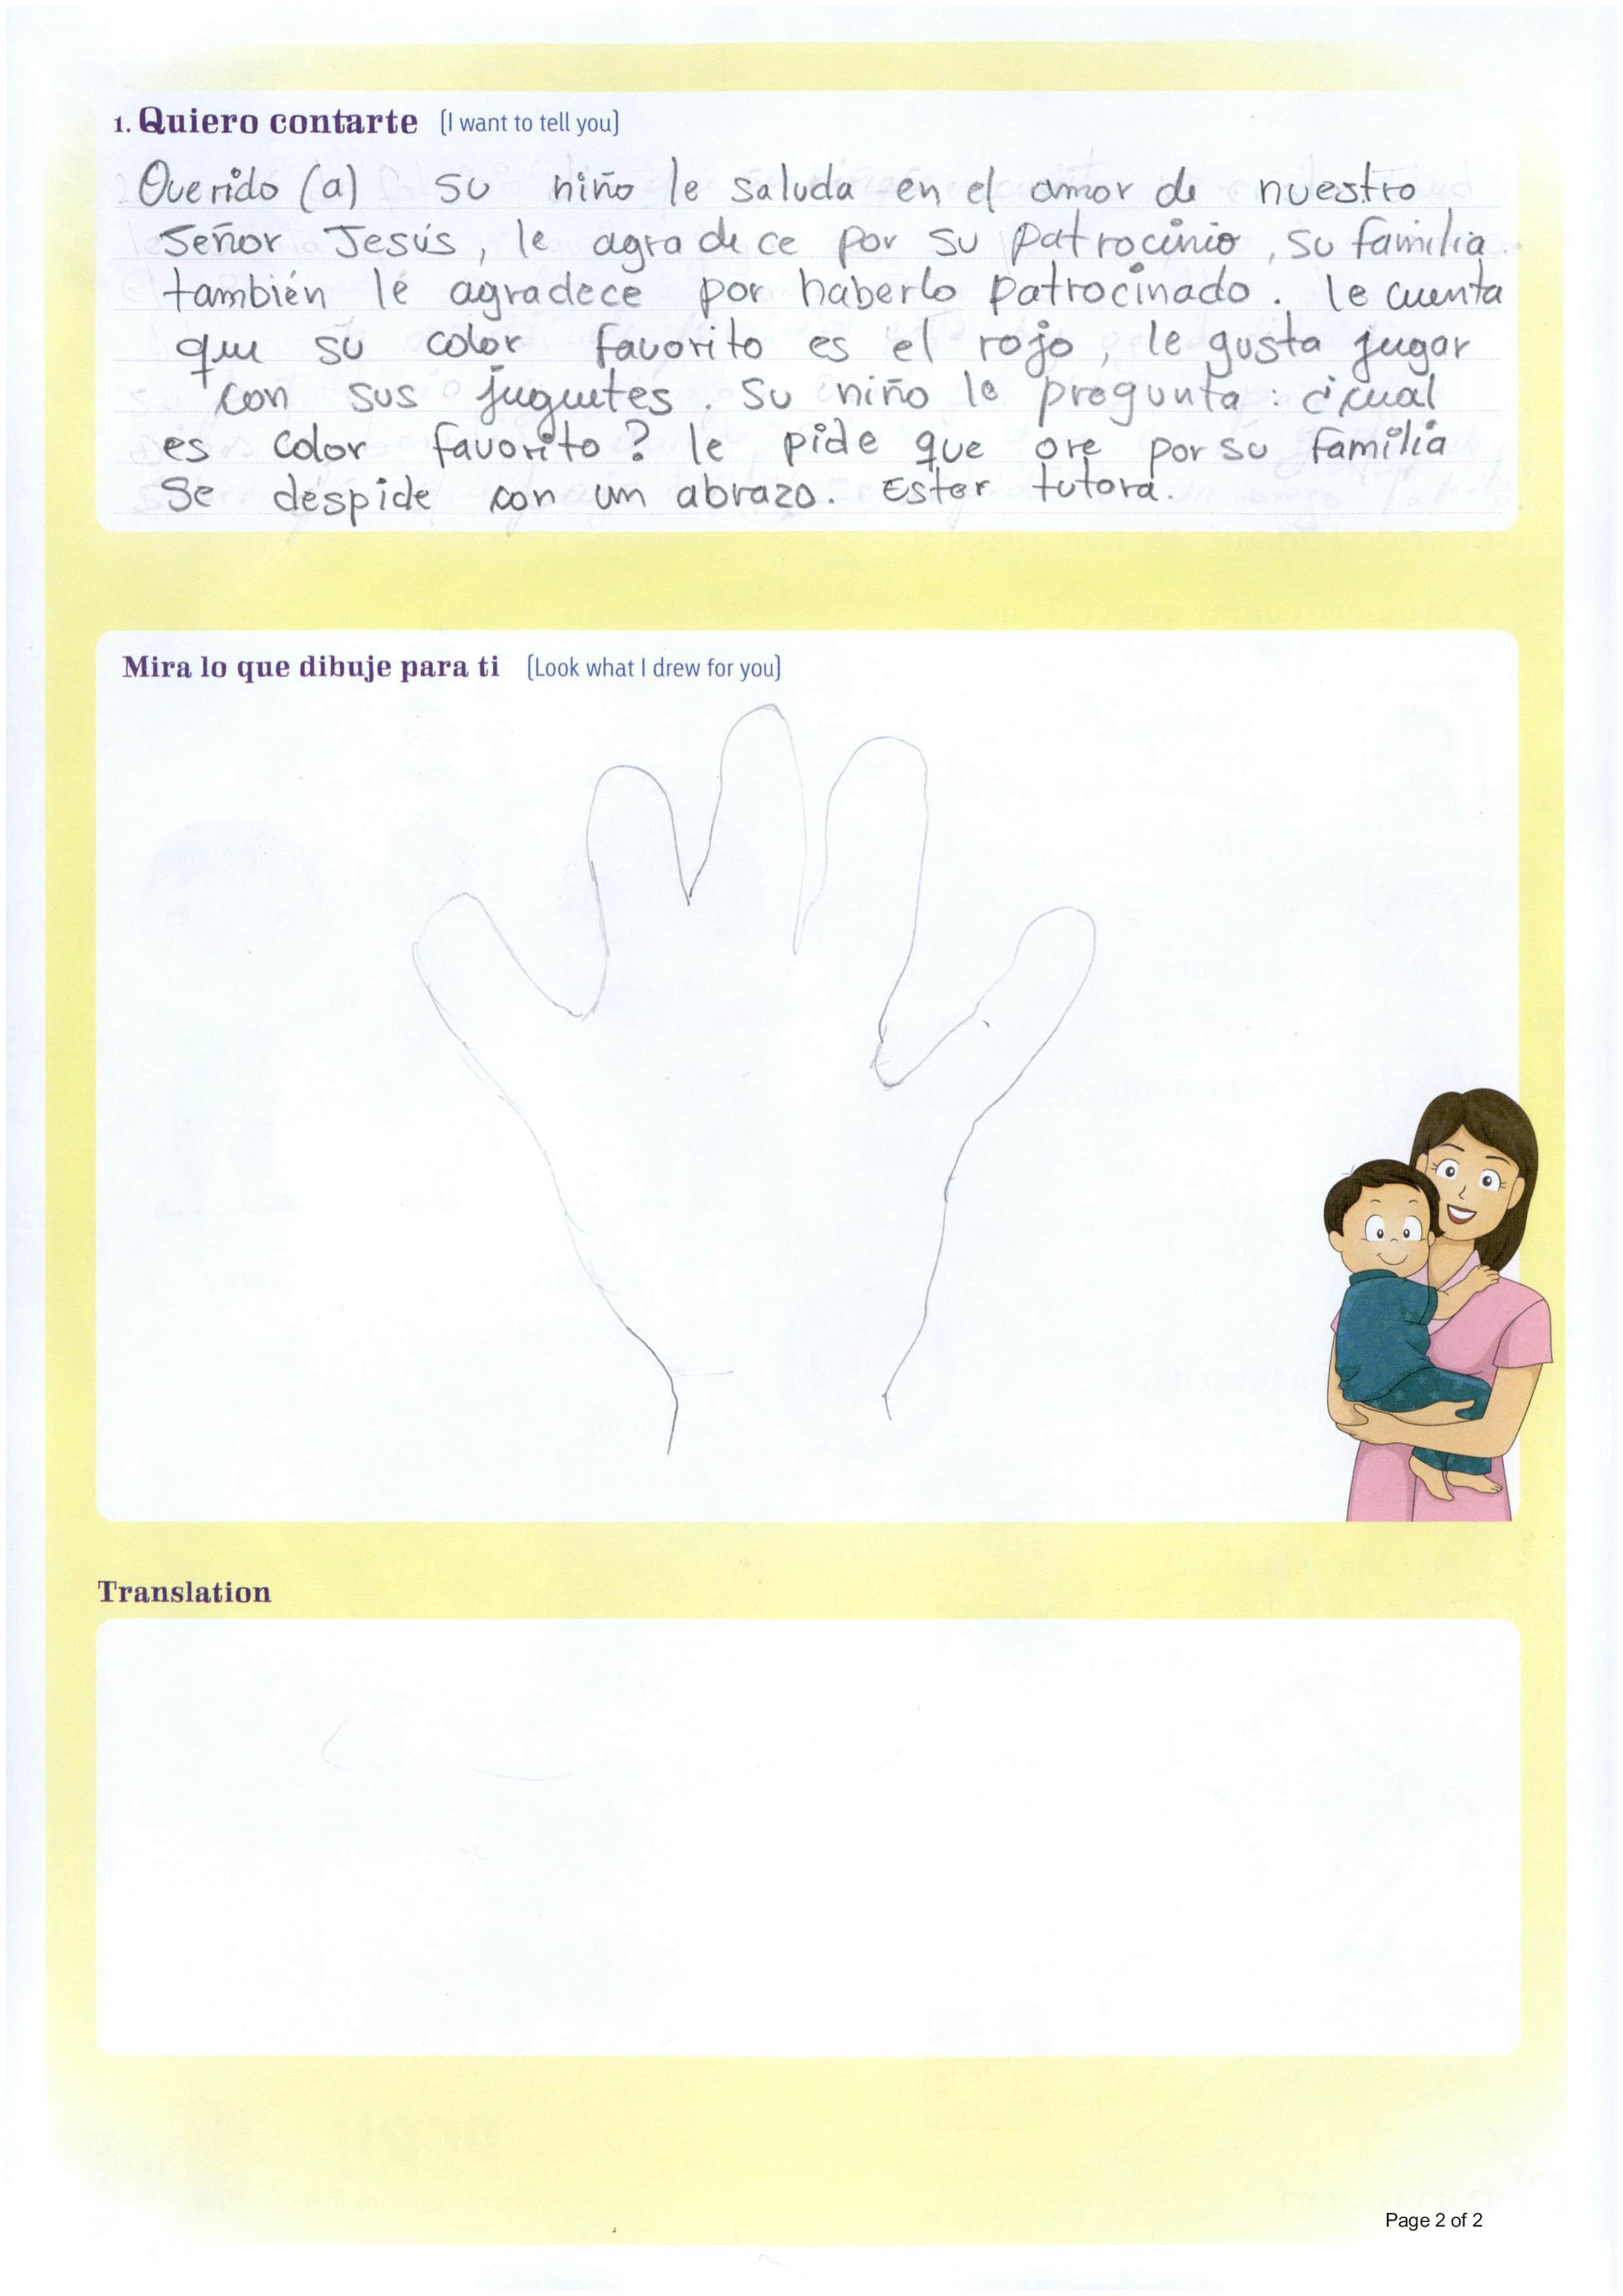 1. Quiero contarte (I want to tell you)
Querido (a) su niño le saluda en el amor de nuestro
Señor Jesús, le agradece por su patrocinio, su familia
también le agradece por haberlo patrocinado. le cuenta
que su color favorito es el rojo, le gusta jugar
con sus juguetes. Su niño le pregunta: ¿cual
es color favorito? le pide que ore por su familia
Se despide con un abrazo. Ester tutora.
Mira lo que dibuje para ti (Look what I drew for you)
Translation
Page 2 of 2